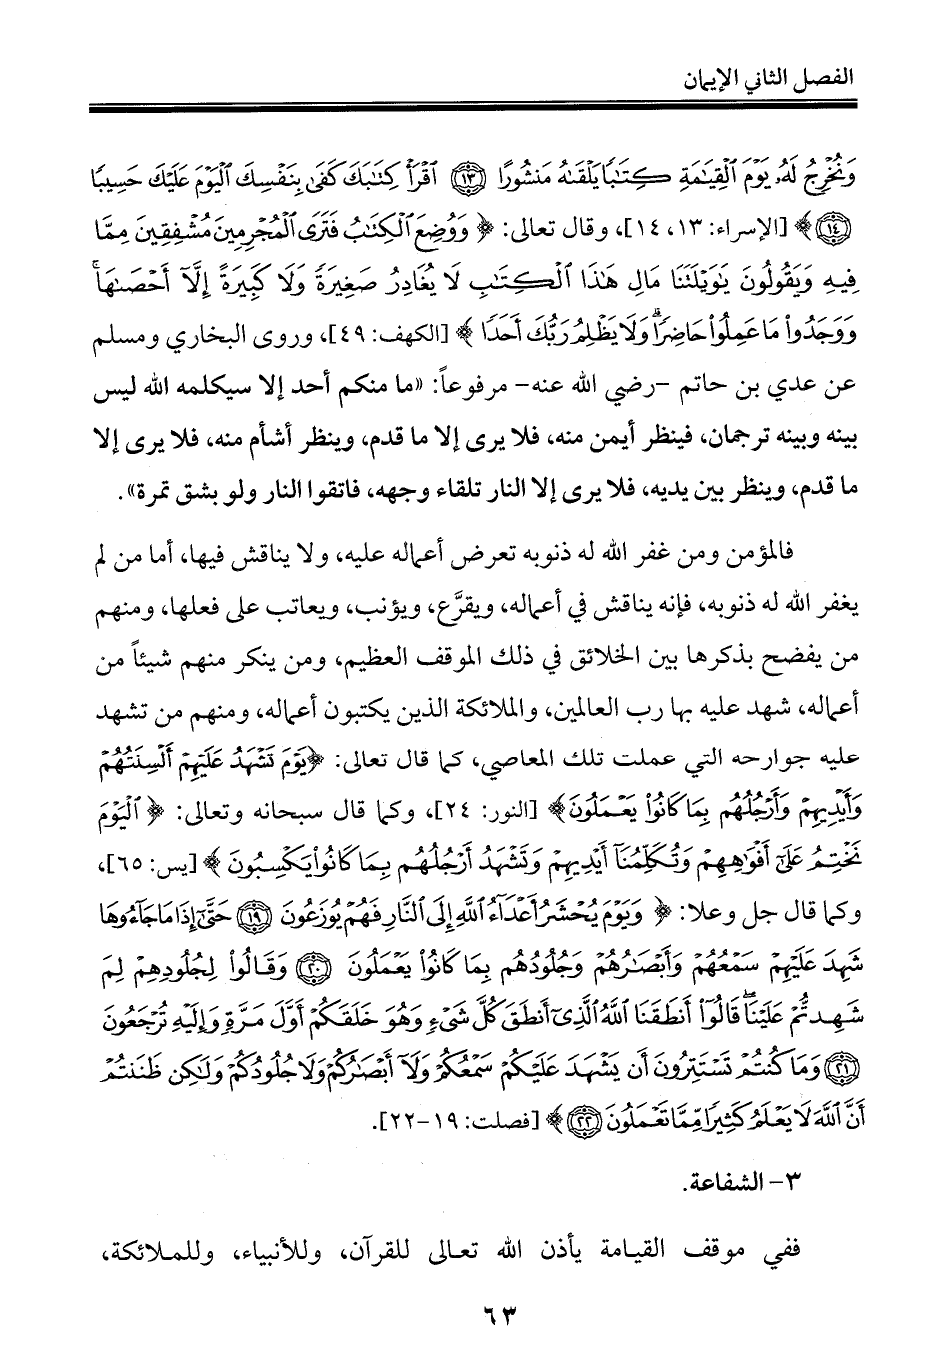 الفصل الثاني الإيمان
وَنُخْرِجُ لَهُۥ يَوْمَ ٱلْقِيَٰمَةِ كِتَٰبًا يَلْقَىٰهُ مَنشُورًا ۝١٣ ٱقْرَأْ كِتَٰبَكَ كَفَىٰ بِنَفْسِكَ ٱلْيَوْمَ عَلَيْكَ حَسِيبًا
۝١٤ ﴾ [الإسراء: ١٣، ١٤]، وقال تعالى: ﴿ وَوُضِعَ ٱلْكِتَٰبُ فَتَرَى ٱلْمُجْرِمِينَ مُشْفِقِينَ مِمَّا
فِيهِ وَيَقُولُونَ يَٰوَيْلَتَنَا مَالِ هَٰذَا ٱلْكِتَٰبِ لَا يُغَادِرُ صَغِيرَةً وَلَا كَبِيرَةً إِلَّآ أَحْصَىٰهَا ۚ
وَوَجَدُوا۟ مَا عَمِلُوا۟ حَاضِرًا ۗ وَلَا يَظْلِمُ رَبُّكَ أَحَدًا ﴾ [الكهف: ٤٩]، وروى البخاري ومسلم
عن عدي بن حاتم -رضي الله عنه- مرفوعاً: «ما منكم أحد إلا سيكلمه الله ليس
بينه وبينه ترجمان، فينظر أيمن منه، فلا يرى إلا ما قدم، وينظر أشأم منه، فلا يرى إلا
ما قدم، وينظر بين يديه، فلا يرى إلا النار تلقاء وجهه، فاتقوا النار ولو بشق تمرة».
فالمؤمن ومن غفر الله له ذنوبه تعرض أعماله عليه، ولا يناقش فيها، أما من لم
يغفر الله له ذنوبه، فإنه يناقش في أعماله، ويقرَّع، ويؤنب، ويعاتب على فعلها، ومنهم
من يفضح بذكرها بين الخلائق في ذلك الموقف العظيم، ومن ينكر منهم شيئاً من
أعماله، شهد عليه بها رب العالمين، والملائكة الذين يكتبون أعماله، ومنهم من تشهد
عليه جوارحه التي عملت تلك المعاصي، كما قال تعالى: ﴿يَوْمَ تَشْهَدُ عَلَيْهِمْ أَلْسِنَتُهُمْ
وَأَيْدِيهِمْ وَأَرْجُلُهُم بِمَا كَانُوا۟ يَعْمَلُونَ﴾ [النور: ٢٤]، وكما قال سبحانه وتعالى: ﴿ ٱلْيَوْمَ
نَخْتِمُ عَلَىٰٓ أَفْوَٰهِهِمْ وَتُكَلِّمُنَآ أَيْدِيهِمْ وَتَشْهَدُ أَرْجُلُهُم بِمَا كَانُوا۟ يَكْسِبُونَ ﴾ [يس: ٦٥]،
وكما قال جل وعلا: ﴿ وَيَوْمَ يُحْشَرُ أَعْدَآءُ ٱللَّهِ إِلَى ٱلنَّارِ فَهُمْ يُوزَعُونَ ۝١٩ حَتَّىٰٓ إِذَا مَا جَآءُوهَا
شَهِدَ عَلَيْهِمْ سَمْعُهُمْ وَأَبْصَٰرُهُمْ وَجُلُودُهُم بِمَا كَانُوا۟ يَعْمَلُونَ ۝٢٠ وَقَالُوا۟ لِجُلُودِهِمْ لِمَ
شَهِدتُّمْ عَلَيْنَا ۖ قَالُوٓا۟ أَنطَقَنَا ٱللَّهُ ٱلَّذِىٓ أَنطَقَ كُلَّ شَىْءٍ وَهُوَ خَلَقَكُمْ أَوَّلَ مَرَّةٍ وَإِلَيْهِ تُرْجَعُونَ
۝٢١ وَمَا كُنتُمْ تَسْتَتِرُونَ أَن يَشْهَدَ عَلَيْكُمْ سَمْعُكُمْ وَلَآ أَبْصَٰرُكُمْ وَلَا جُلُودُكُمْ وَلَٰكِن ظَنَنتُمْ
أَنَّ ٱللَّهَ لَا يَعْلَمُ كَثِيرًا مِّمَّا تَعْمَلُونَ ۝٢٢ ﴾ [فصلت: ١٩-٢٢].
٣- الشفاعة.
ففي موقف القيامة يأذن الله تعالى للقرآن، وللأنبياء، وللملائكة،
٦٣